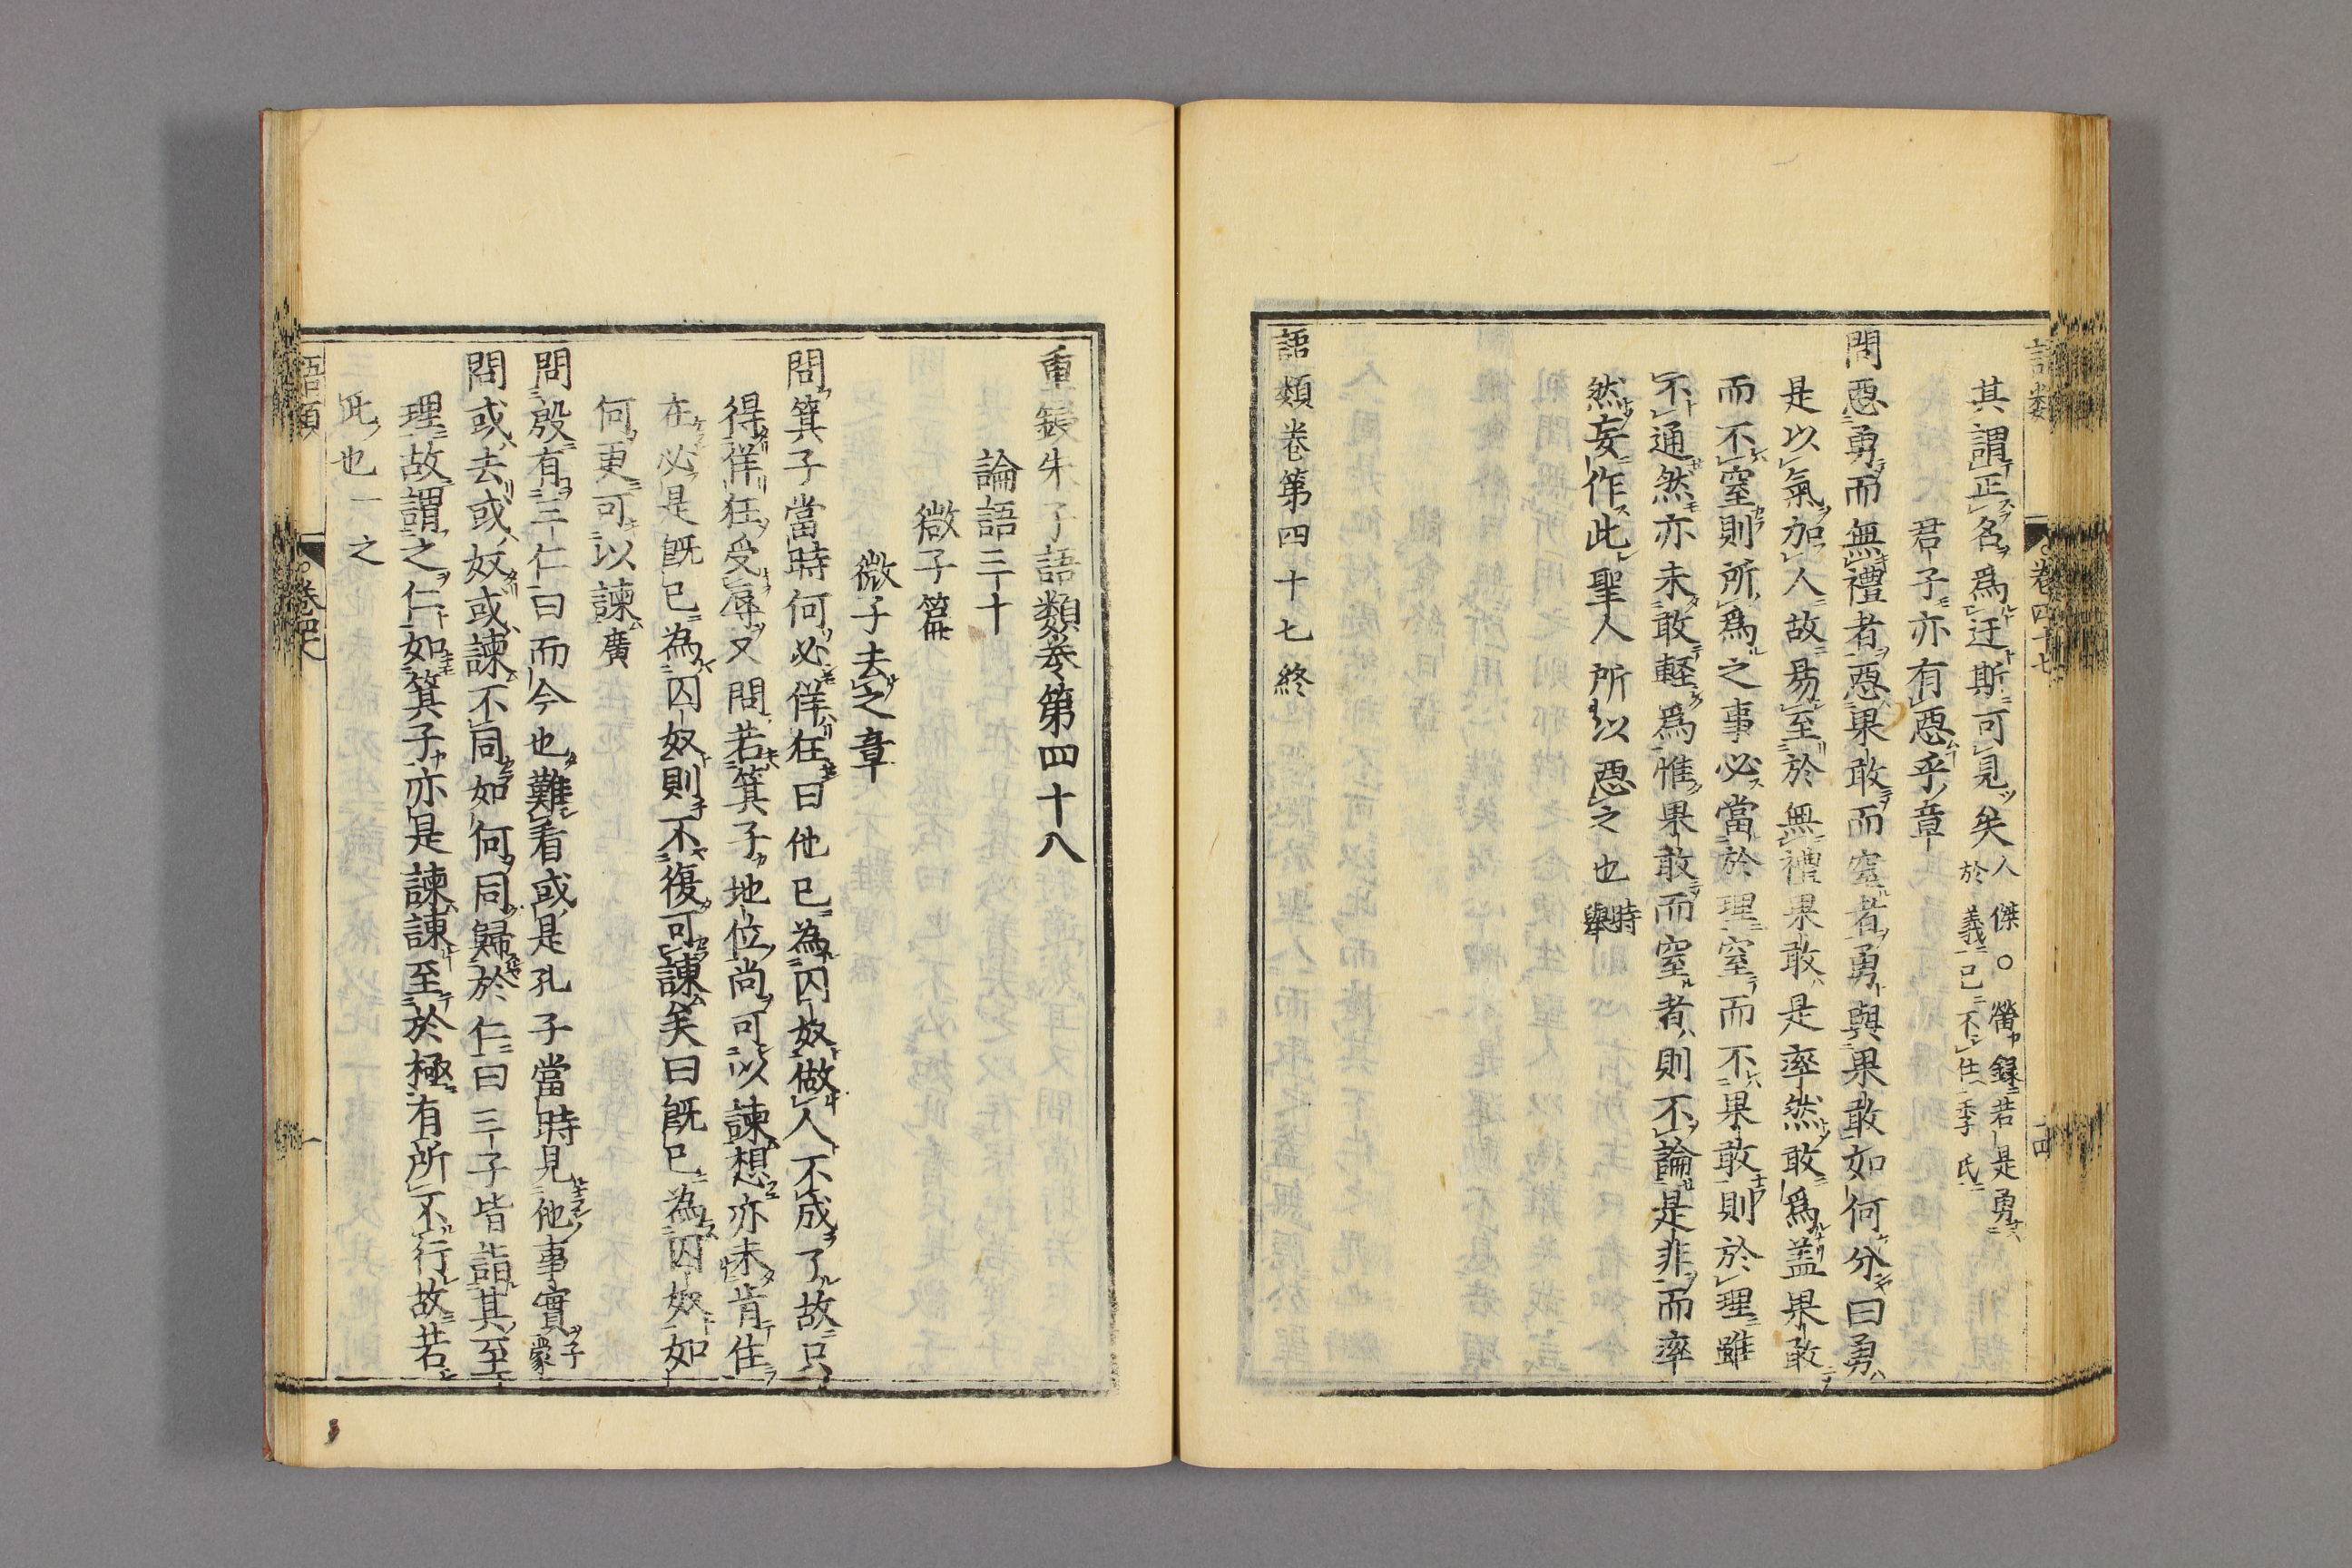 語類
卷四十七
其謂正名爲迂斯可見矣人傑○㽦録若是勇於義已不仕季氏
君子亦有惡乎章
問惡勇而無禮者惡果敢而窒者勇與果敢如何分曰勇
是以氣加人故易至於無禮果敢是率然敢爲盖果敢
而不窒則所爲之事必當於理窒而不果敢則於理雖
不通然亦未敢輕爲惟果敢而窒者則不論是非而率
然妄作此聖人所以惡之也時舉
語類卷第四十七終
重鋟朱子語類卷第四十八
論語三十
微子篇
微子去之章
問箕子當時何必佯狂曰他已為囚奴做人不成了故只
得佯狂受辱又問若箕子地位尚可以諫想亦未肯住
在必是既已為囚奴則不復可諫矣曰既已為囚奴如
何更可以諫廣
問殷有三仁曰而今也難看或是孔子當時見他事實子蒙
問或去或奴或諫不同如何同歸於仁曰三子皆詣其至
理故謂之仁如箕子亦是諫諫至於極有所不行故若
此也一之
語類